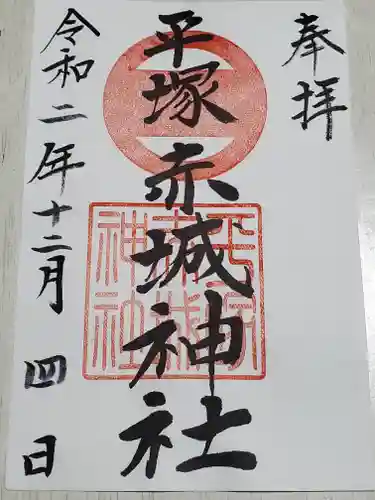 奉拝
平塚赤城神社
平塚赤城神社
令和二年十二月四日